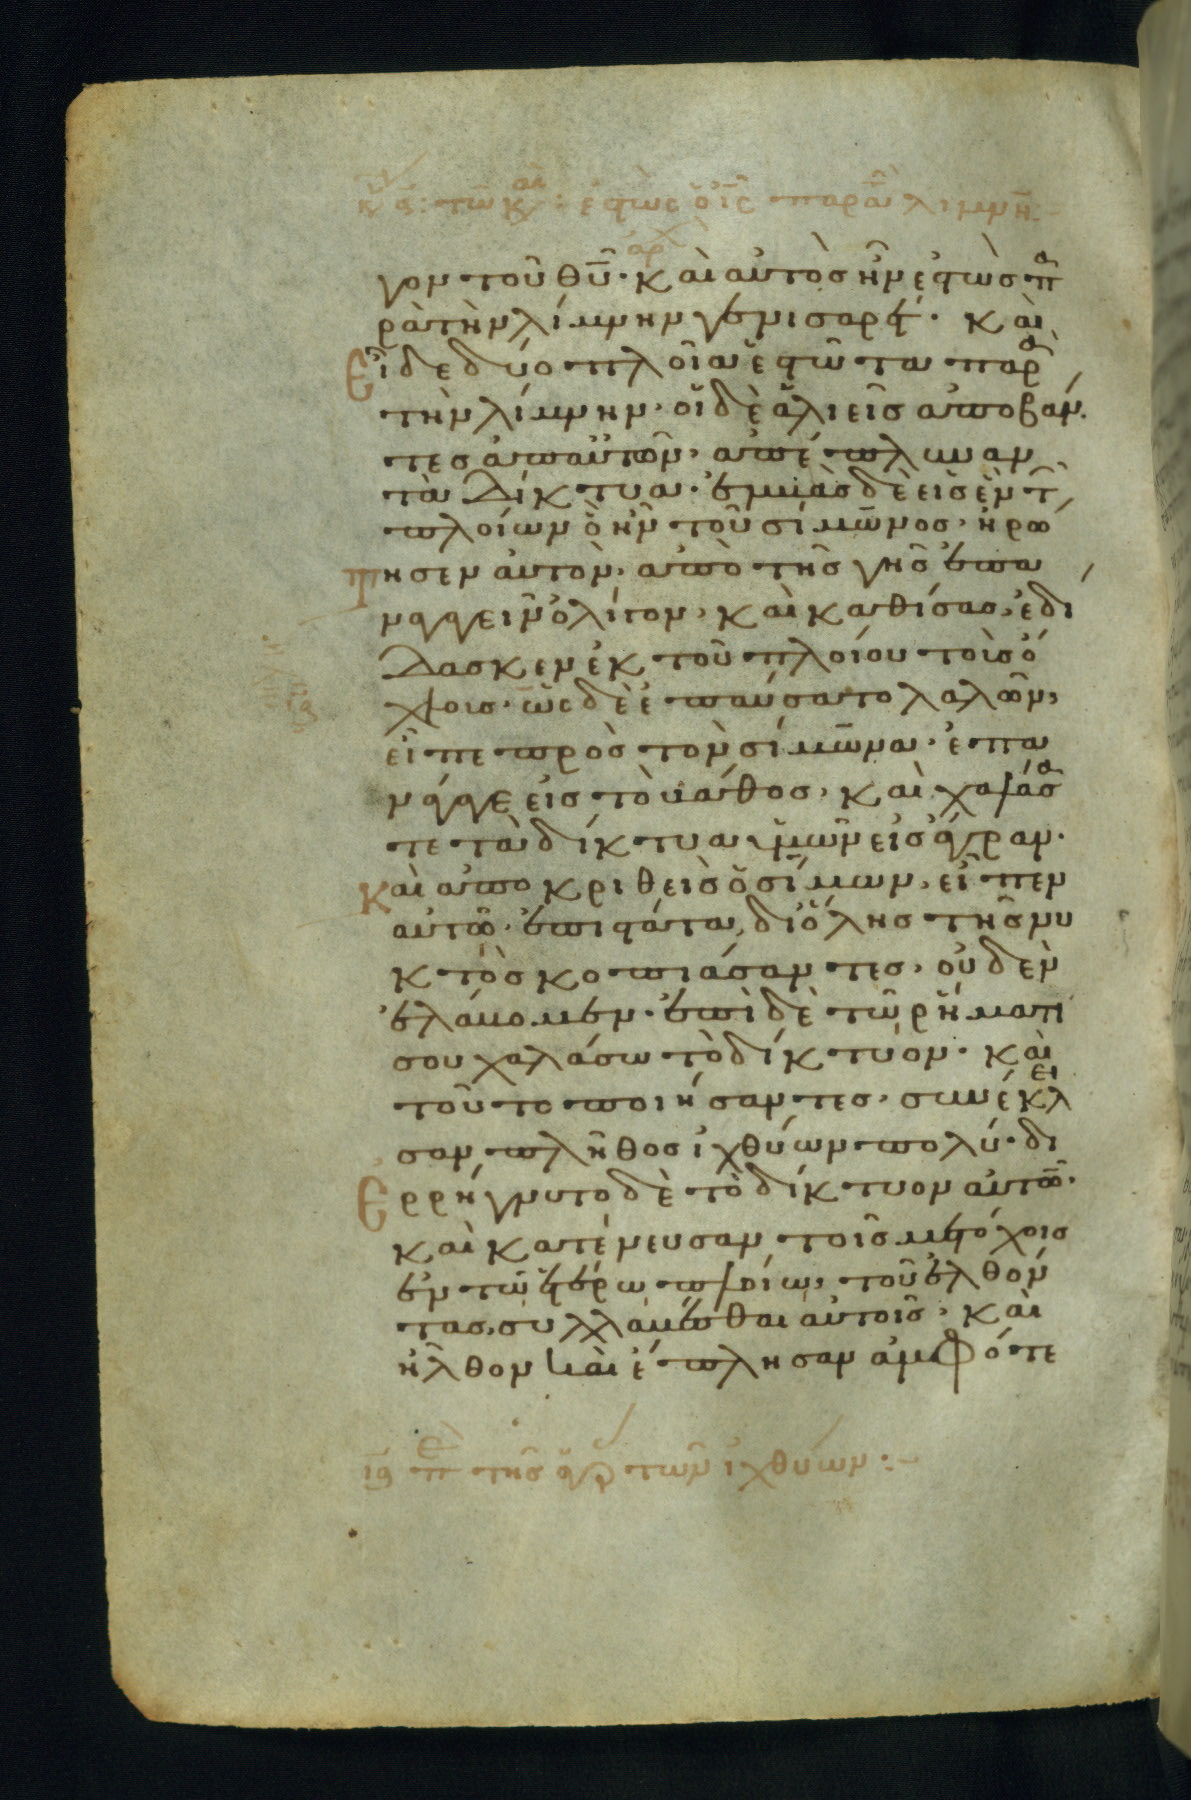 γον τοῦ θ̅υ̅· καὶ αὐτὸς ἦν ἑστὼς πα
ρὰ τὴν λίμνην γεννισαρέτ· καὶ
εἶδε δύο πλοῖα ἑστῶτα παρὰ
τὴν λίμνην· οἱ δὲ ἁλιεῖς ἀποβάν
τες ἀπ' αὐτῶν, ἀπέπλυναν
τὰ δίκτυα· ἐμβὰς δὲ εἰς ἓν τῶν
πλοίων ὃ ἦν τοῦ σίμωνος, ἠρώ
τησεν αὐτὸν, ἀπὸ τῆς γῆς ἐπα
ναγαγεῖν ὀλίγον, καὶ καθίσας, ἐδί
δασκεν ἐκ τοῦ πλοίου τοὺς ὄ
χλους· ὡς δὲ ἐπαύσατο λαλῶν,
εἶπε πρὸς τὸν σίμωνα· ἐπα
νάγαγε εἰς τὸ βάθος, καὶ χαλάσα
τε τὰ δίκτυα ὑμῶν εἰς ἄγραν·
καὶ ἀποκριθεὶς ὁ σίμων, εἶπεν
αὐτῷ· ἐπιστάτα, δι' ὅλης τῆς νυ
κτὸς κοπιάσαντες, οὐδὲν
ἐλάβομεν· ἐπὶ δὲ τῷ ῥήματί
σου χαλάσω τὸ δίκτυον· καὶ
τοῦτο ποιήσαντες, συνέκλει
σαν πλῆθος ἰχθύων πολύ· δι
ερρήγνυτο δὲ τὸ δίκτυον αὐτῶν·
καὶ κατένευσαν τοῖς μετόχοις
ἐν τῷ ἑτέρω πλοίω, τοῦ ἐλθόν
τας, συλλαβέσθαι αὐτοῖς· καὶ
ἦλθον καὶ ἔπλησαν ἀμφότε
τῆς ἄγρας τῶν ἰχθύων :-